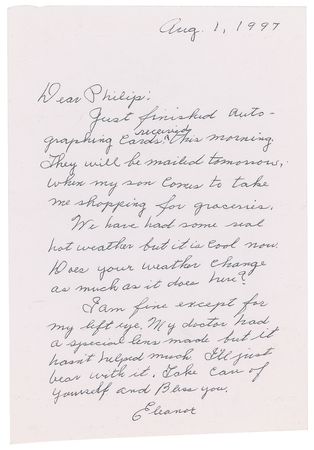 Aug. 1, 1997
Dear Philip:
Just finished auto-
graphing cards received this morning.
They will be mailed tomorrow,
when my son comes to take
me shopping for groceries.
We have had some real
hot weather but it is cool now.
Does your weather change
as much as it does here?
I am fine except for
my left eye. My doctor had
a special lens made but it
hasn't helped much I'll just
bear with it. Take care of
yourself and Bless you.
Eleanor